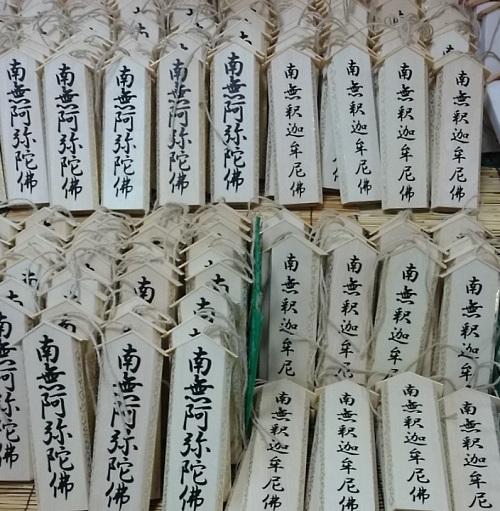 南無阿弥陀佛
南無阿弥陀佛
南無阿弥陀佛
南無阿弥陀佛
南無阿弥陀佛
南無釈迦牟尼佛
南無釈迦牟尼佛
南無釈迦牟尼佛
南無釈迦牟尼佛
南無釈迦牟尼
南無釈迦牟尼
南無釈迦牟
南無釈迦牟尼
無阿弥陀佛
南無阿弥陀佛
南無阿弥陀佛
南無阿弥陀佛
南無釈迦牟尼佛
南無釈迦牟尼佛
南無釈迦牟尼佛
南無釈迦牟尼